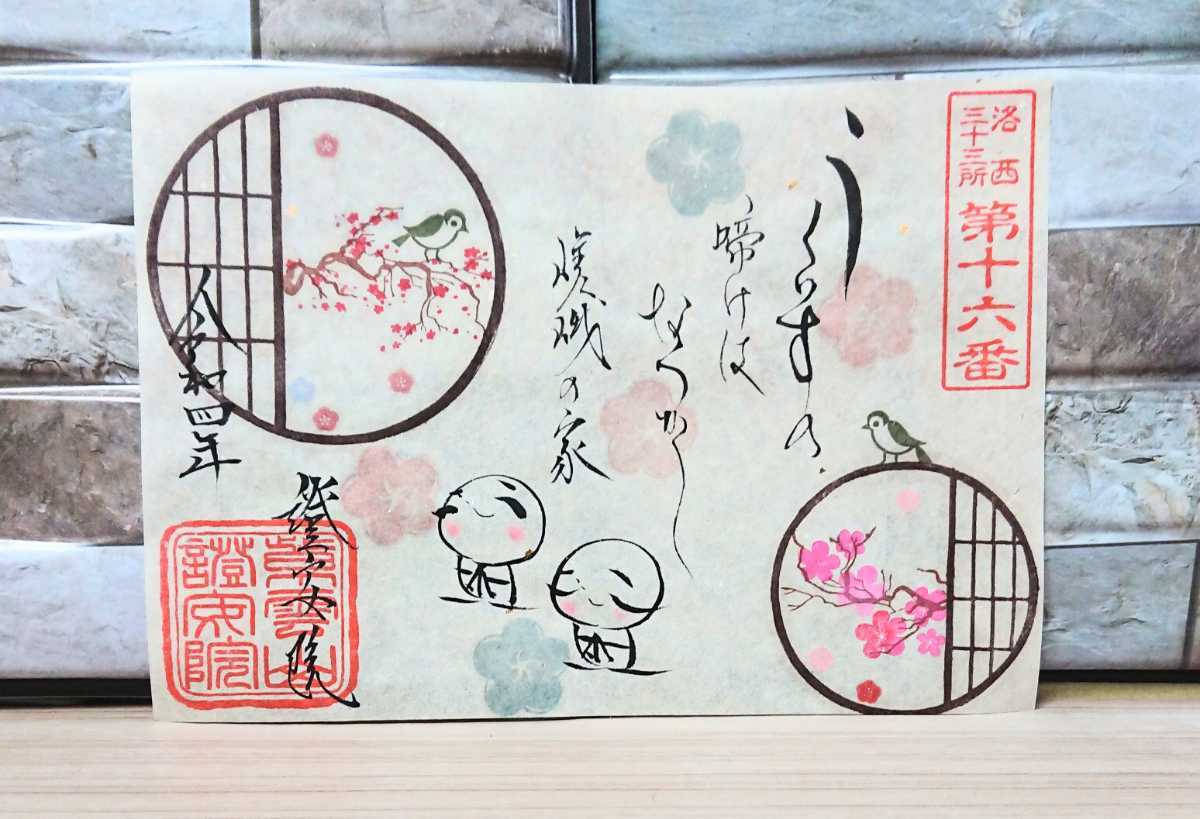 洛西
三十三所
第十六番
うくひすの
啼けは
なつかし
嵯峨の家
令和四年
證安院
證安院